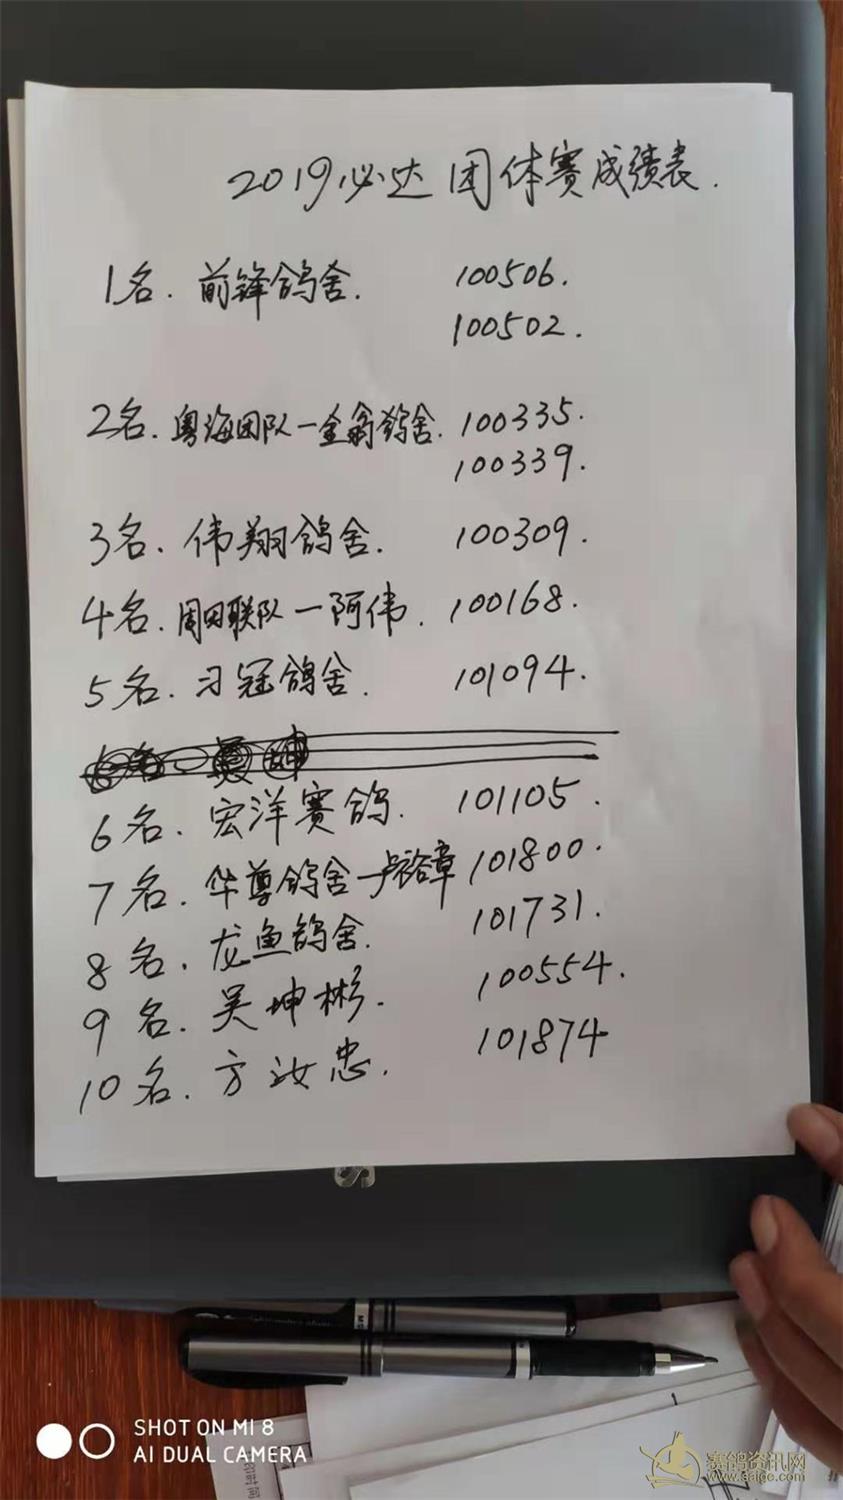 2019必达团体赛成绩表.
1名. 前锋鸽舍. 100506.
100502.
2名. 粤海团队一金翁鸽舍. 100335.
100339.
3名. 伟翔鸽舍. 100309.
4名. 周田联队一阿伟. 100168.
5名. 刁冠鸽舍. 101094.
6名. 宏洋赛鸽. 101105.
7名. 华尊鸽舍一卢裕章 101800.
8名. 龙鱼鸽舍. 101731.
9名. 吴坤彬. 100554.
10名. 方汝忠. 101874
SHOT ON MI 8
AI DUAL CAMERA
赛鸽资讯网
www.saige.com